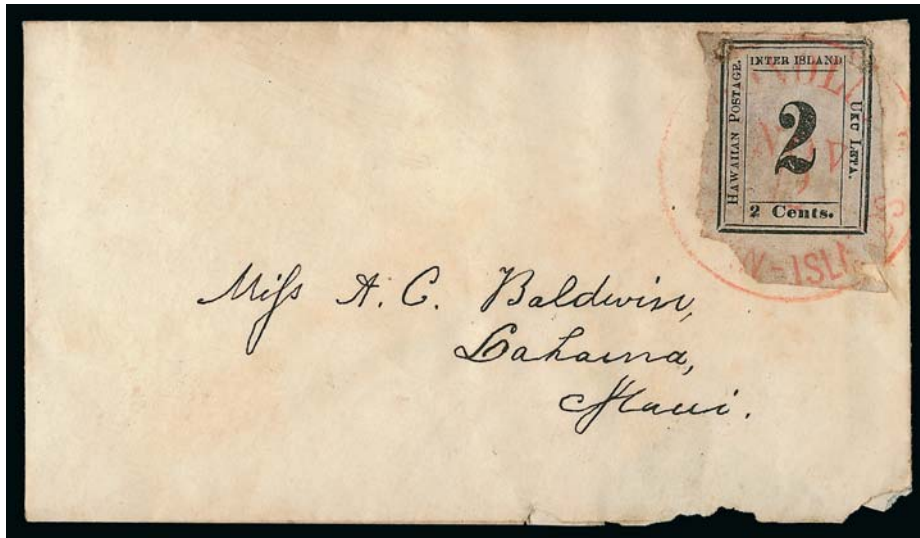 INTER ISLAND
HAWAIIAN POSTAGE.
2
UKU LETA.
2 Cents.
Miss A. C. Baldwin,
Lahaina,
Maui.